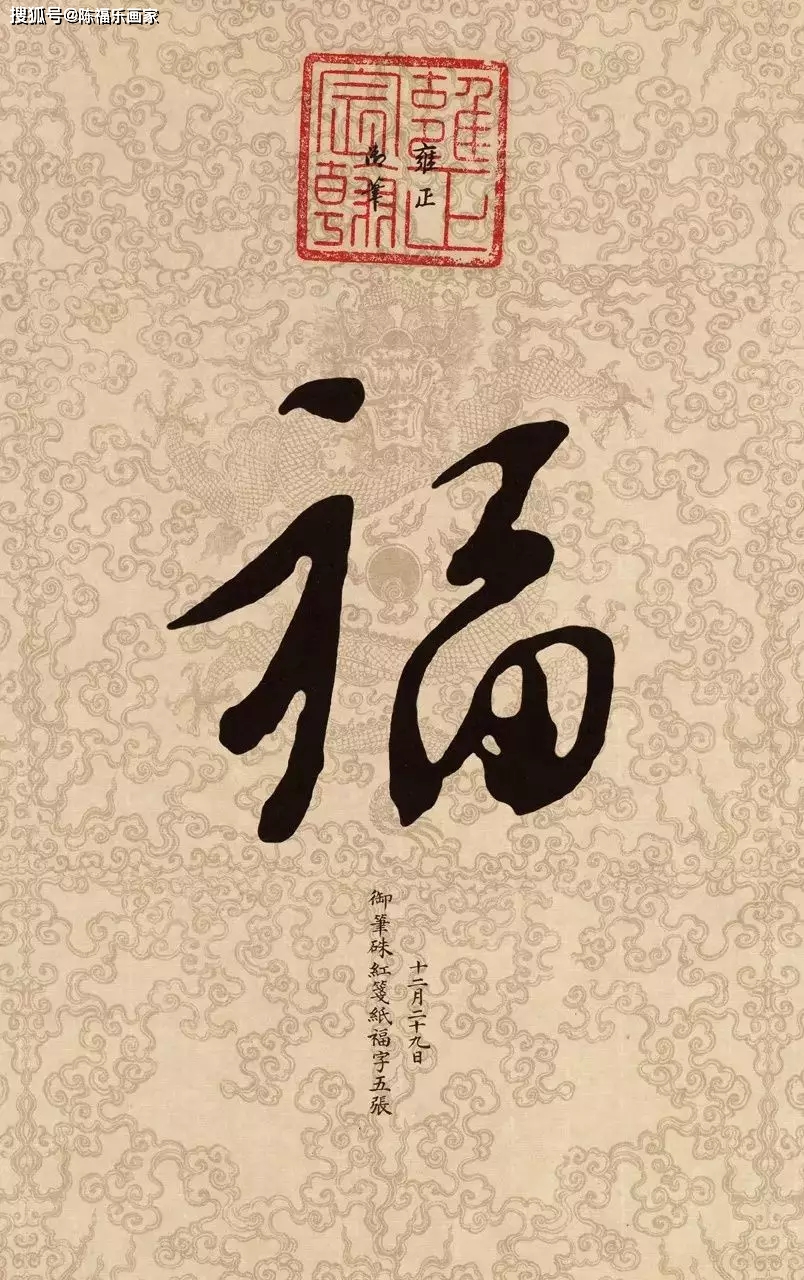 搜狐号@陈福乐画家
雍正
宸翰
雍正
御筆
福
十二月二十九日
御筆硃紅箋紙福字五張